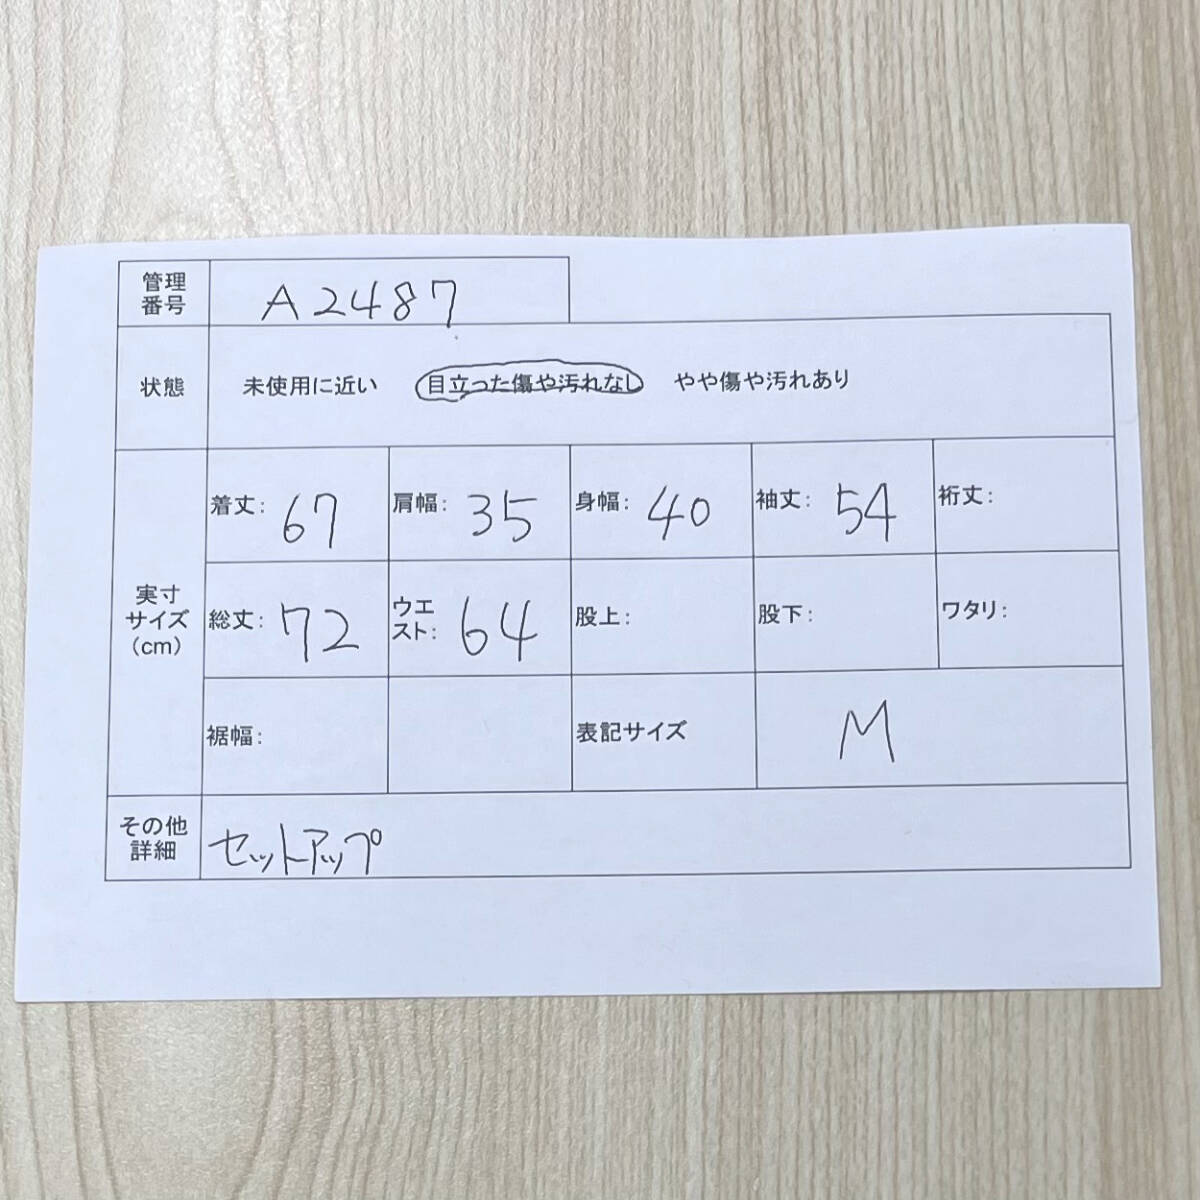 管理
番号
A2487
状態
未使用に近い 目立った傷や汚れなし やや傷や汚れあり
実寸
サイズ
(cm)
着丈: 67
肩幅: 35
身幅: 40
袖丈: 54
裄丈:
総丈: 72
ウエ
スト: 64
股上:
股下:
ワタリ:
裾幅:
表記サイズ
M
その他
詳細
セットアップ